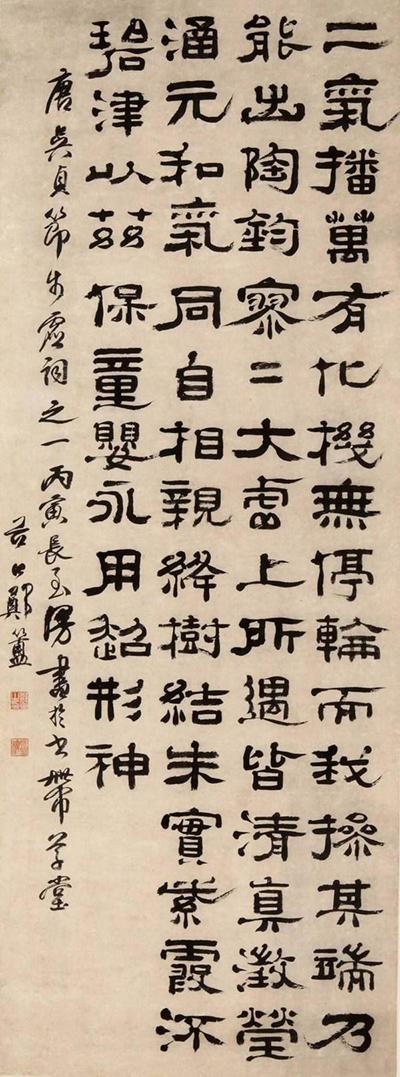 二氣播萬有化機無停輪而我操其端乃
能出陶鈞寥二大虛上所遇皆清真澂瑩
涵元和氣同自相親絳樹結朱實紫霞流
碧津以茲保童嬰永用超形神
唐吳貞節步虛詞之一丙寅長至漫書於書帶草堂
谷口鄭簠